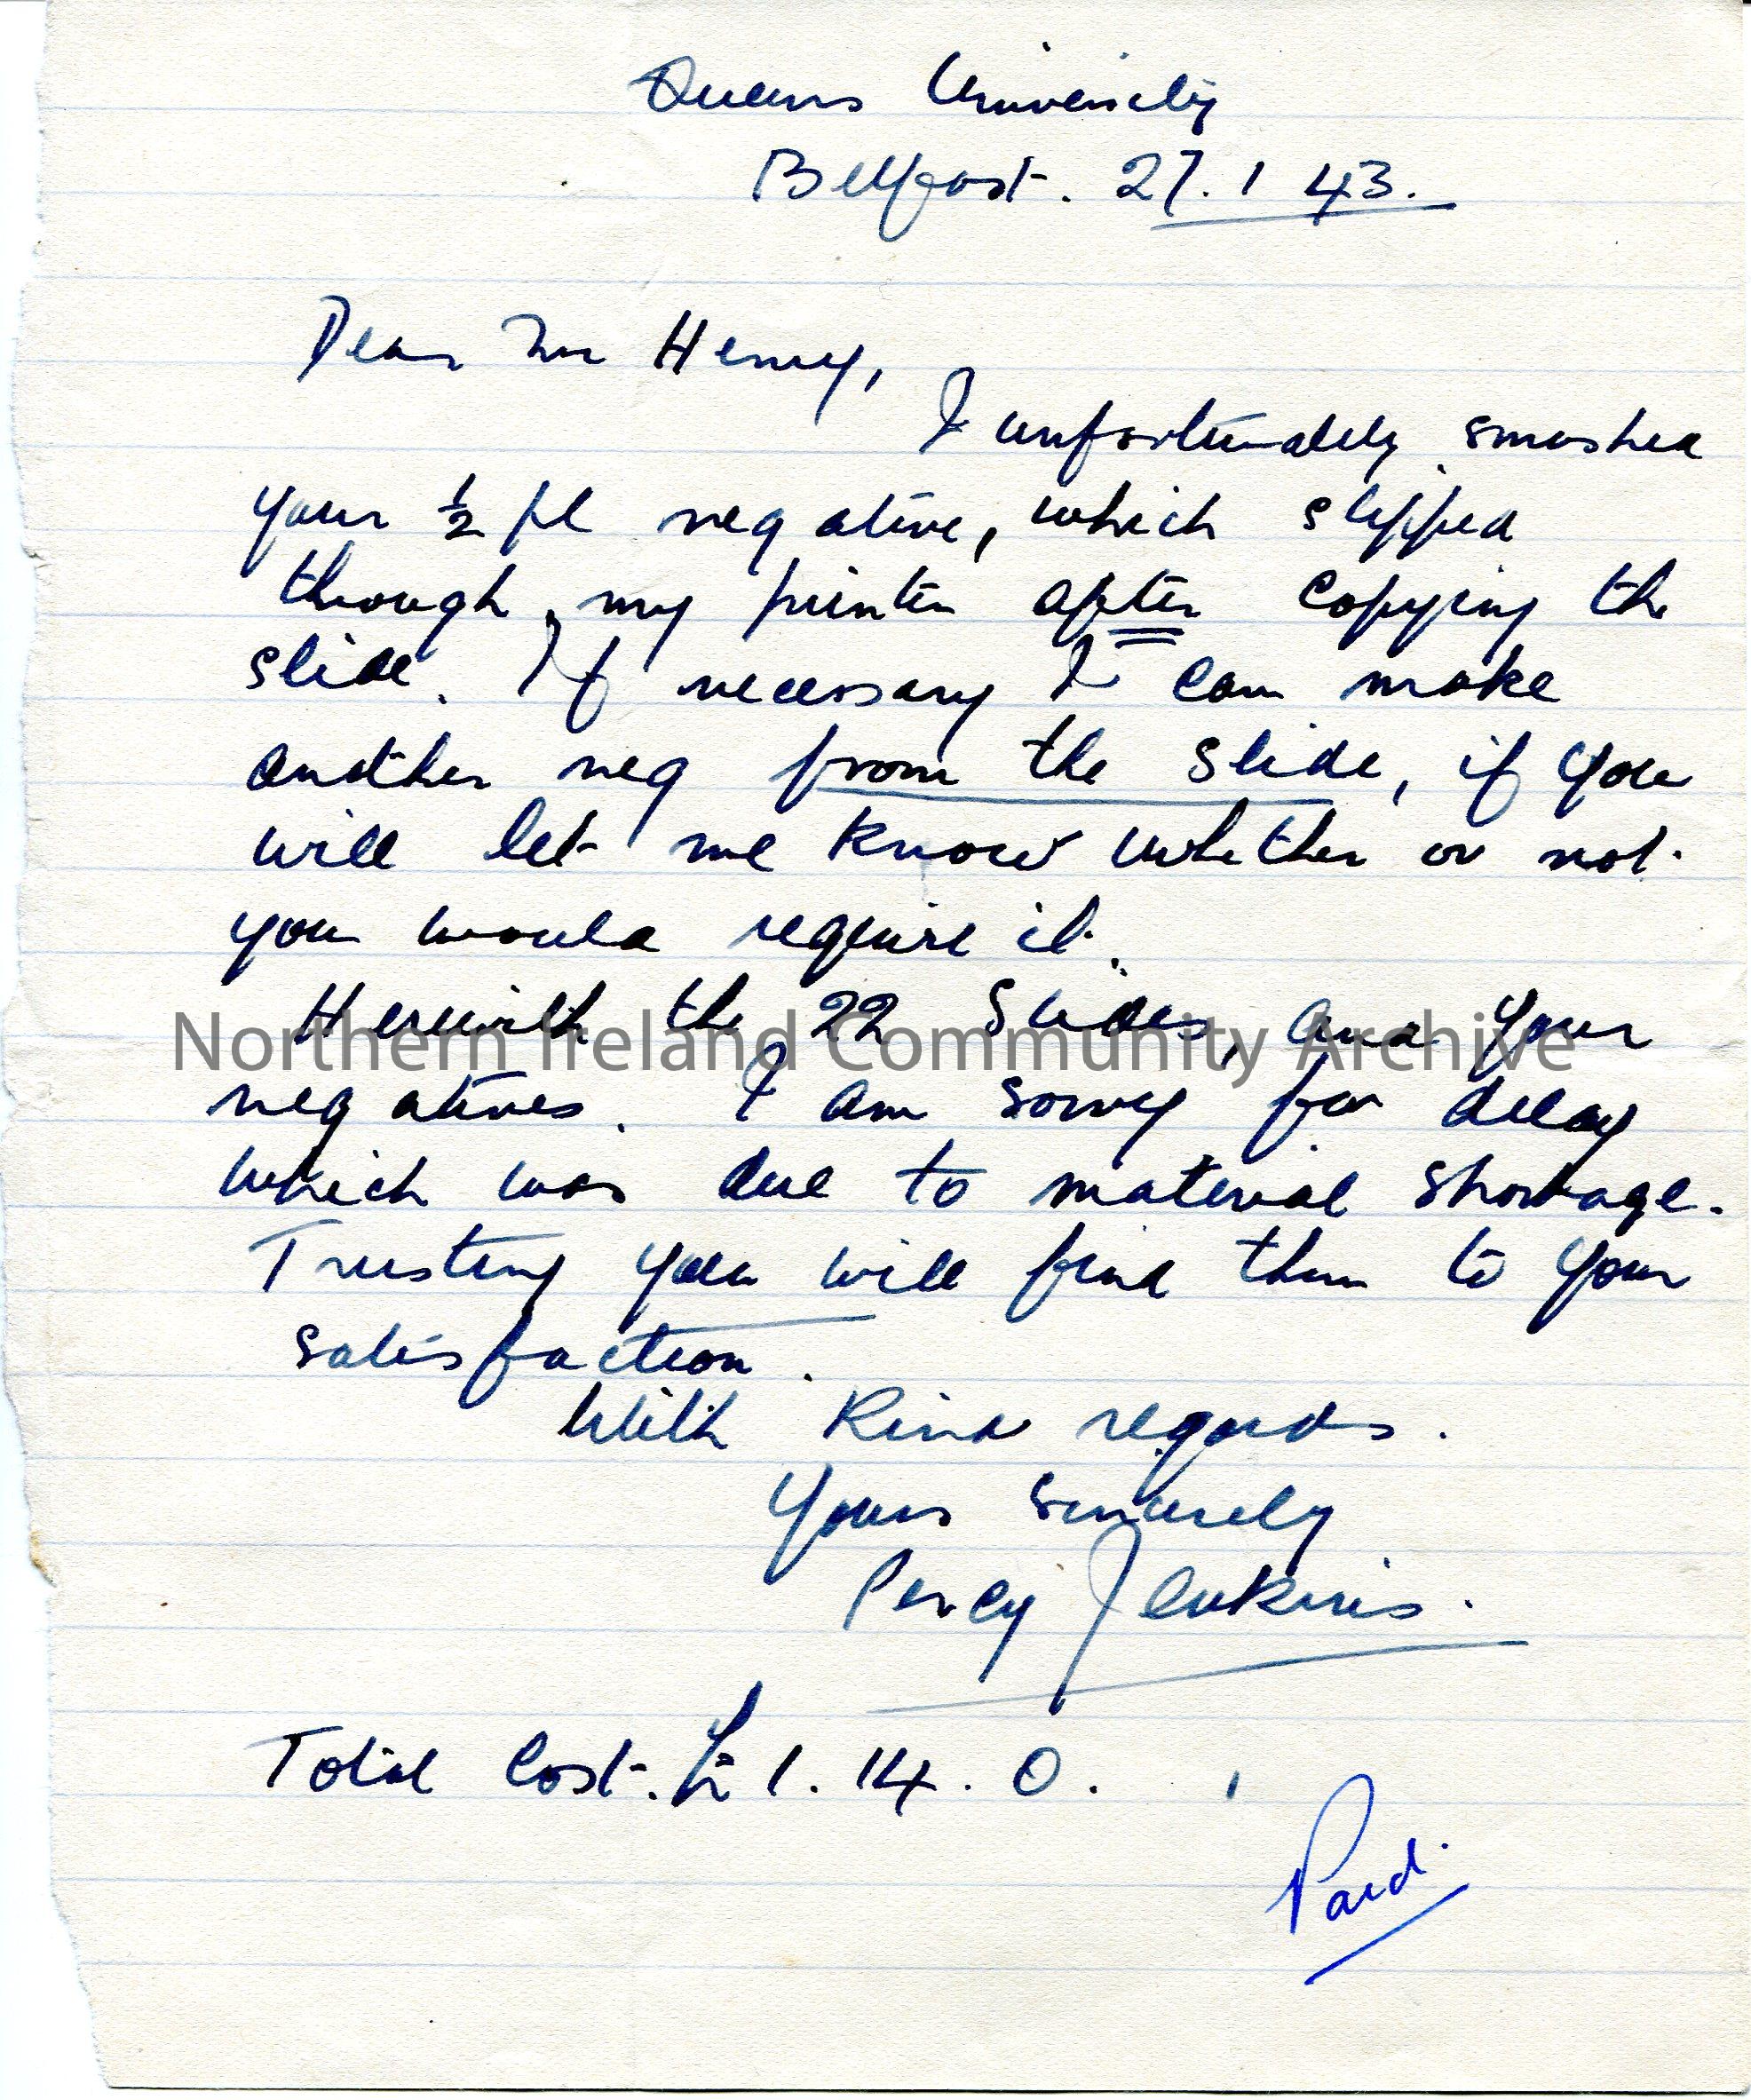 Queens University
Belfast. 27. 1 43.
Dear Mr Henry,
I unfortunately smashed
your ½ pl negative, which slipped
though my printer after copying the
slide. If necessary I can make
another neg from the slide, if you
will let me know whether or not
you would require it.
Herewith the 22 slides, and your
Northern Ireland Community Archive
negatives. I am sorry for delay
which was due to material shortage.
Trusting you will find them to your
satisfaction.
With kind regards.
Yours sincerely
Percy Jenkins.
Total Cost. £1. 14. 0.
Paid.